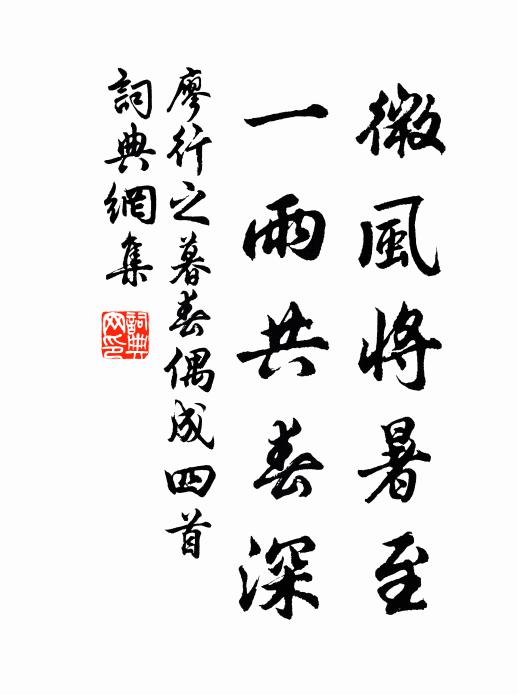 微風將暑至
一雨共春深
廖行之暮春偶成四首
詞典網集
詞典
网印